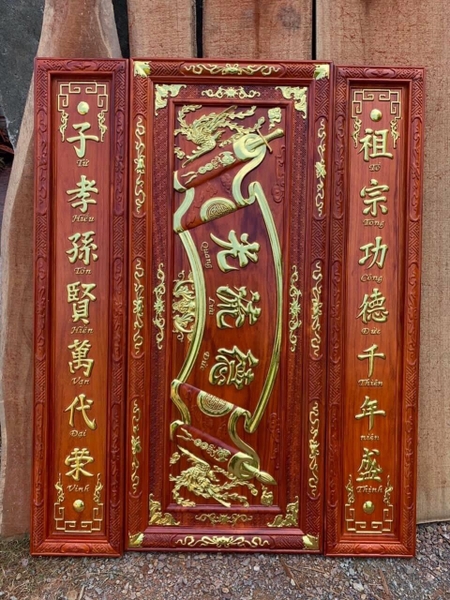 祖宗功德千年盛
Tổ Tông Công Đức Thiên niên Thịnh
光流德
Quang Lưu Đức
子孝孫賢萬代荣
Tử Hiếu Tôn Hiền Vạn Đại Vinh